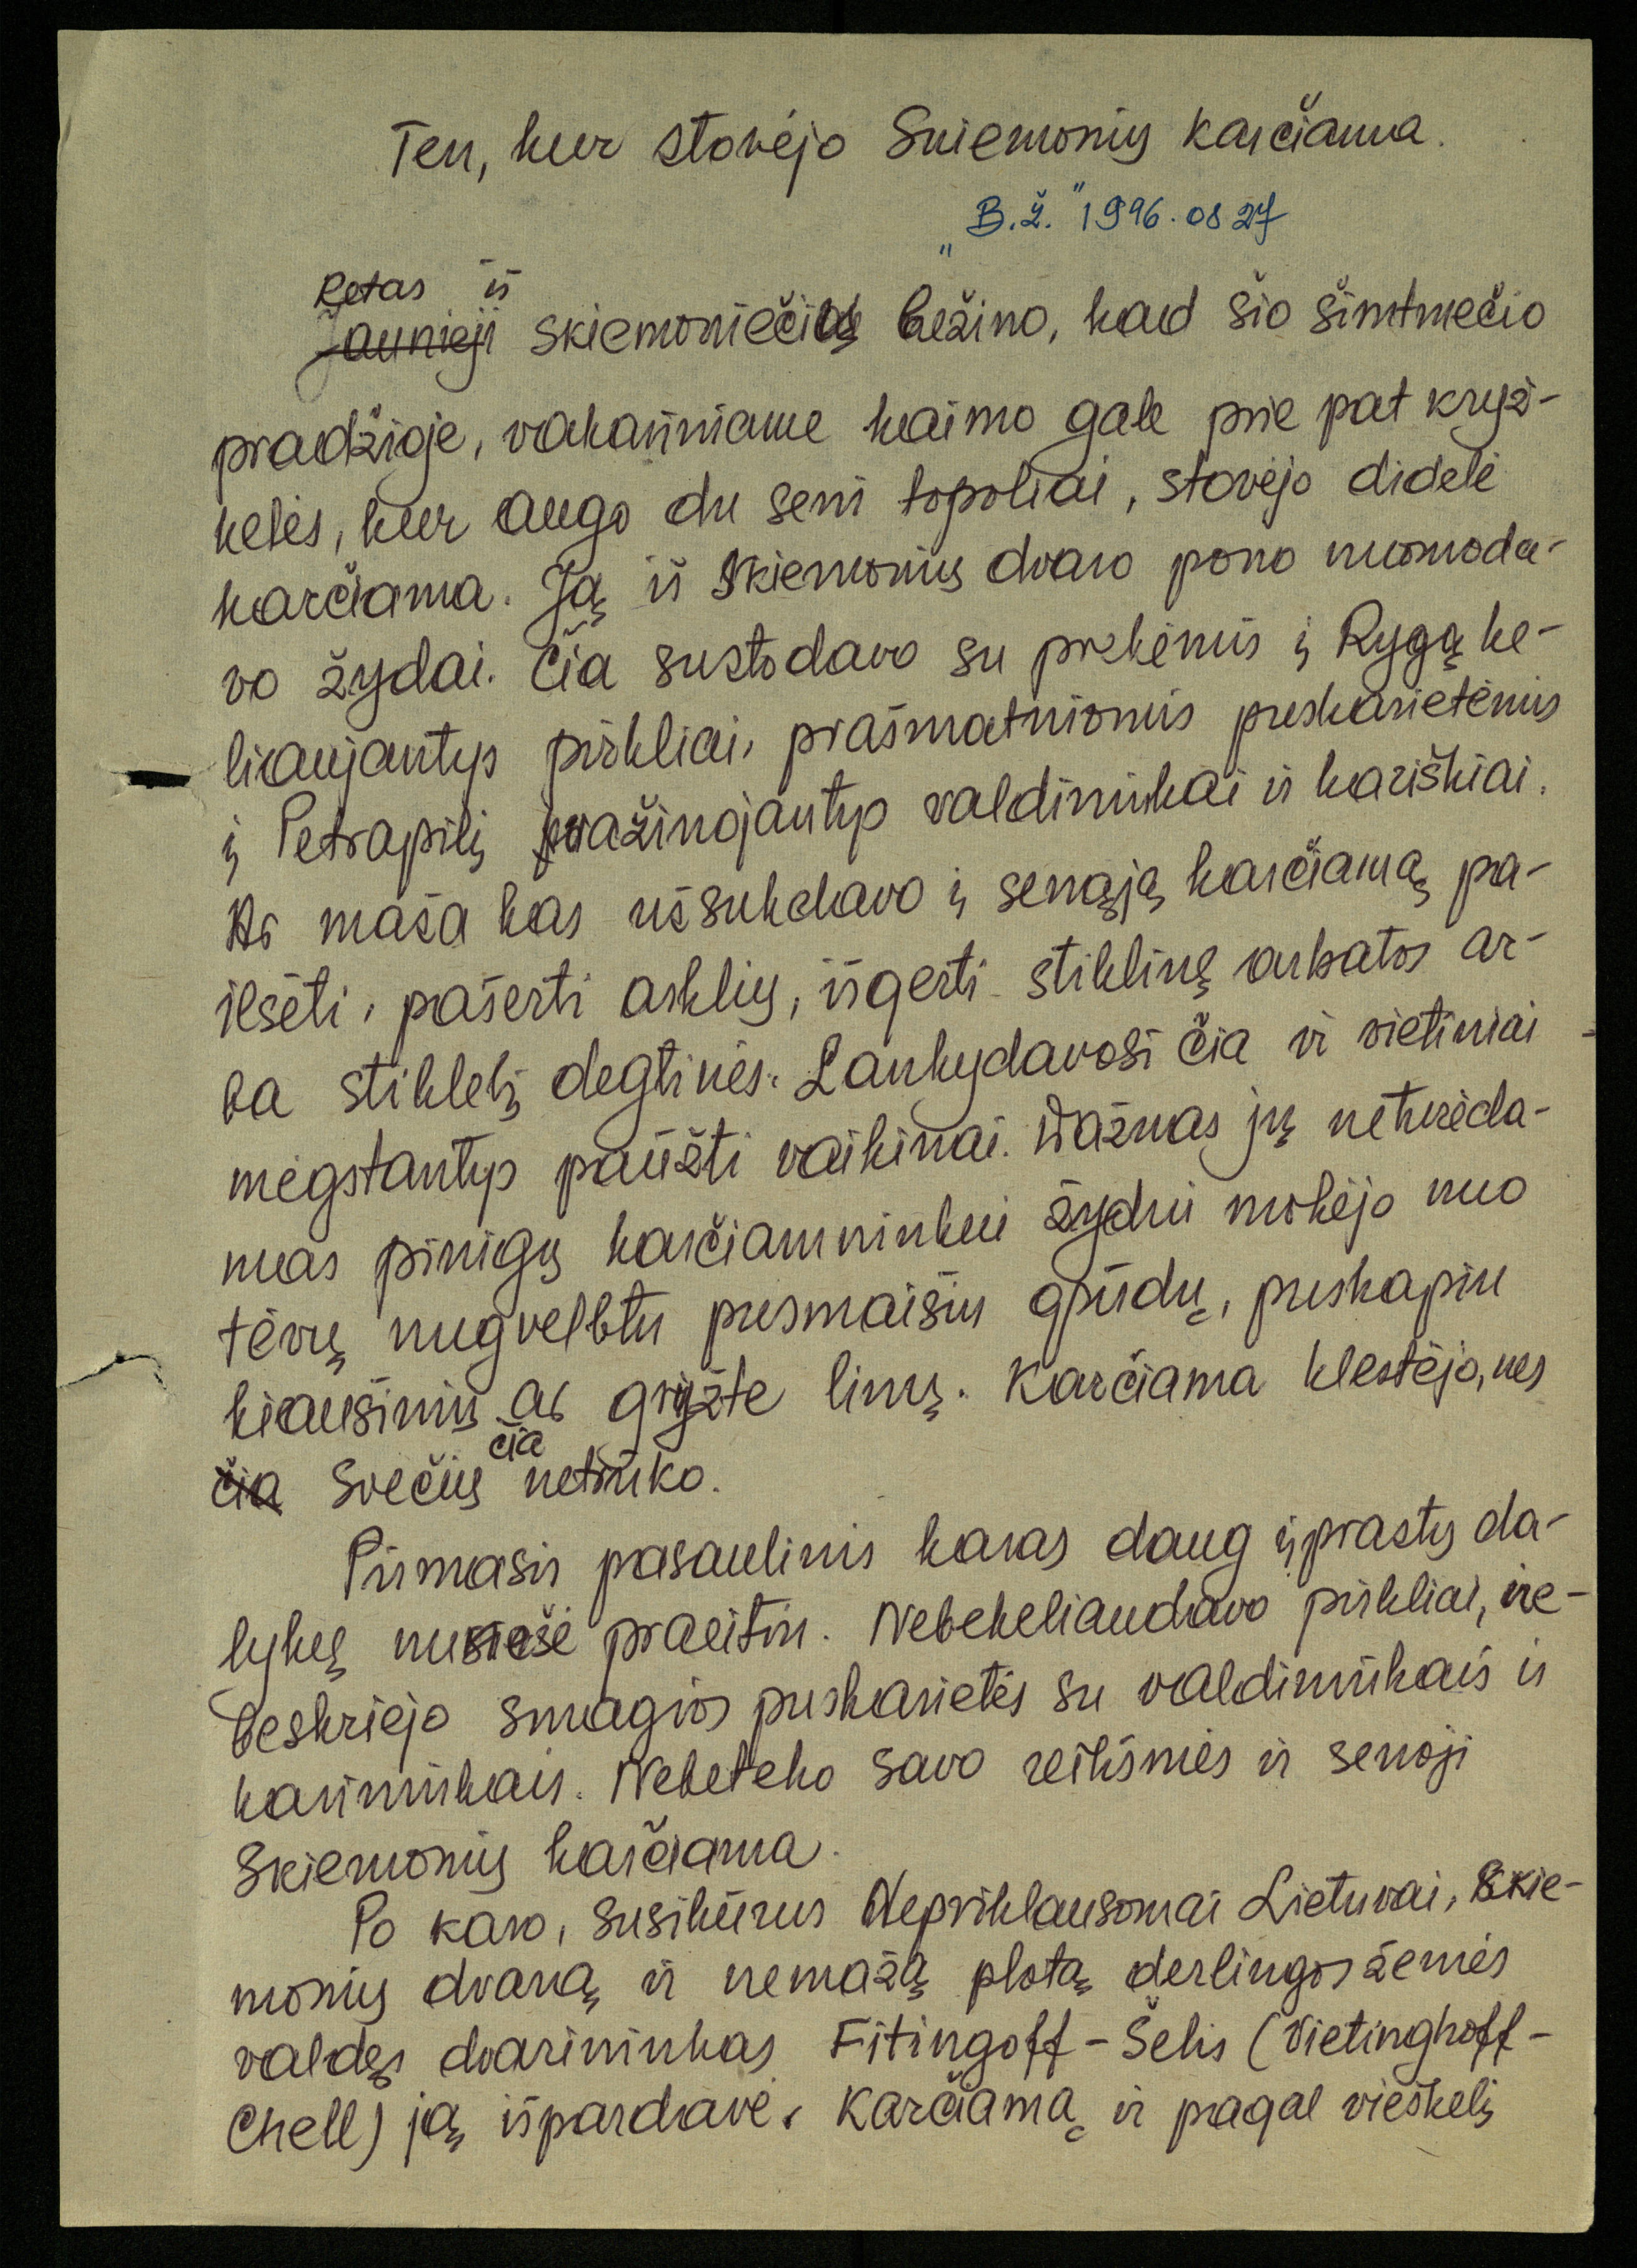 Ten, kur stovėjo Skiemonių karčiama.
„B.ž." 1996.08 27
Retas iš
Jaunieji skiemoniečių bežino, kad šio šimtmečio
pradžioje, vakariniame kaimo gale prie pat kryž-
kelės, kur augo du seni topoliai, stovėjo didelė
karčiama. Ją iš Skiemonių dvaro pono nuomoda-
vo žydai. Čia sustodavo su prekėmis į Rygą ke-
liaujantys pirkliai, prašmatniomis puskarietėmis
į Petrapilį važinojantys valdininkai ir kariškiai.
Ar maža kas užsukdavo į senąją karčiamą pa-
ilsėti, pašerti arklių, išgerti stiklinę arbatos ar-
ba stiklelį degtinės. Lankydavosi čia ir vietiniai
mėgstantys paūžti vaikinai. Dažnas jų neturėda-
mas pinigų karčiamninkui žydui mokėjo nuo
tėvų nugvelbtu pusmaišiu grūdų, puskapiu
kiaušinių ar grįžte linų. Karčiama klestėjo, nes
čia svečių čia netrūko.
Pirmasis pasaulinis karas daug įprastų da-
lykų nusinešė praeitin. Nebekeliaudavo pirkliai, ne-
beskriejo smagios puskarietės su valdininkais ir
karininkais. Nebeteko savo reikšmės ir senoji
Skiemonių karčiama.
Po karo, susikūrus Nepriklausomai Lietuvai, Skie-
monių dvarą ir nemažą plotą derlingos žemės
valdęs dvarininkas Fitingoff - Šelis (Vietinghoff -
Chell) ją išpardavė. Karčiamą ir pagal vieškelį